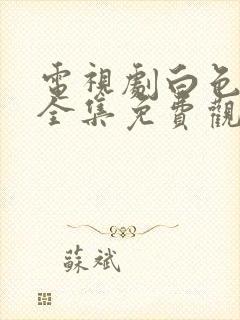 電視劇白色
全集免費觀
蘇斌